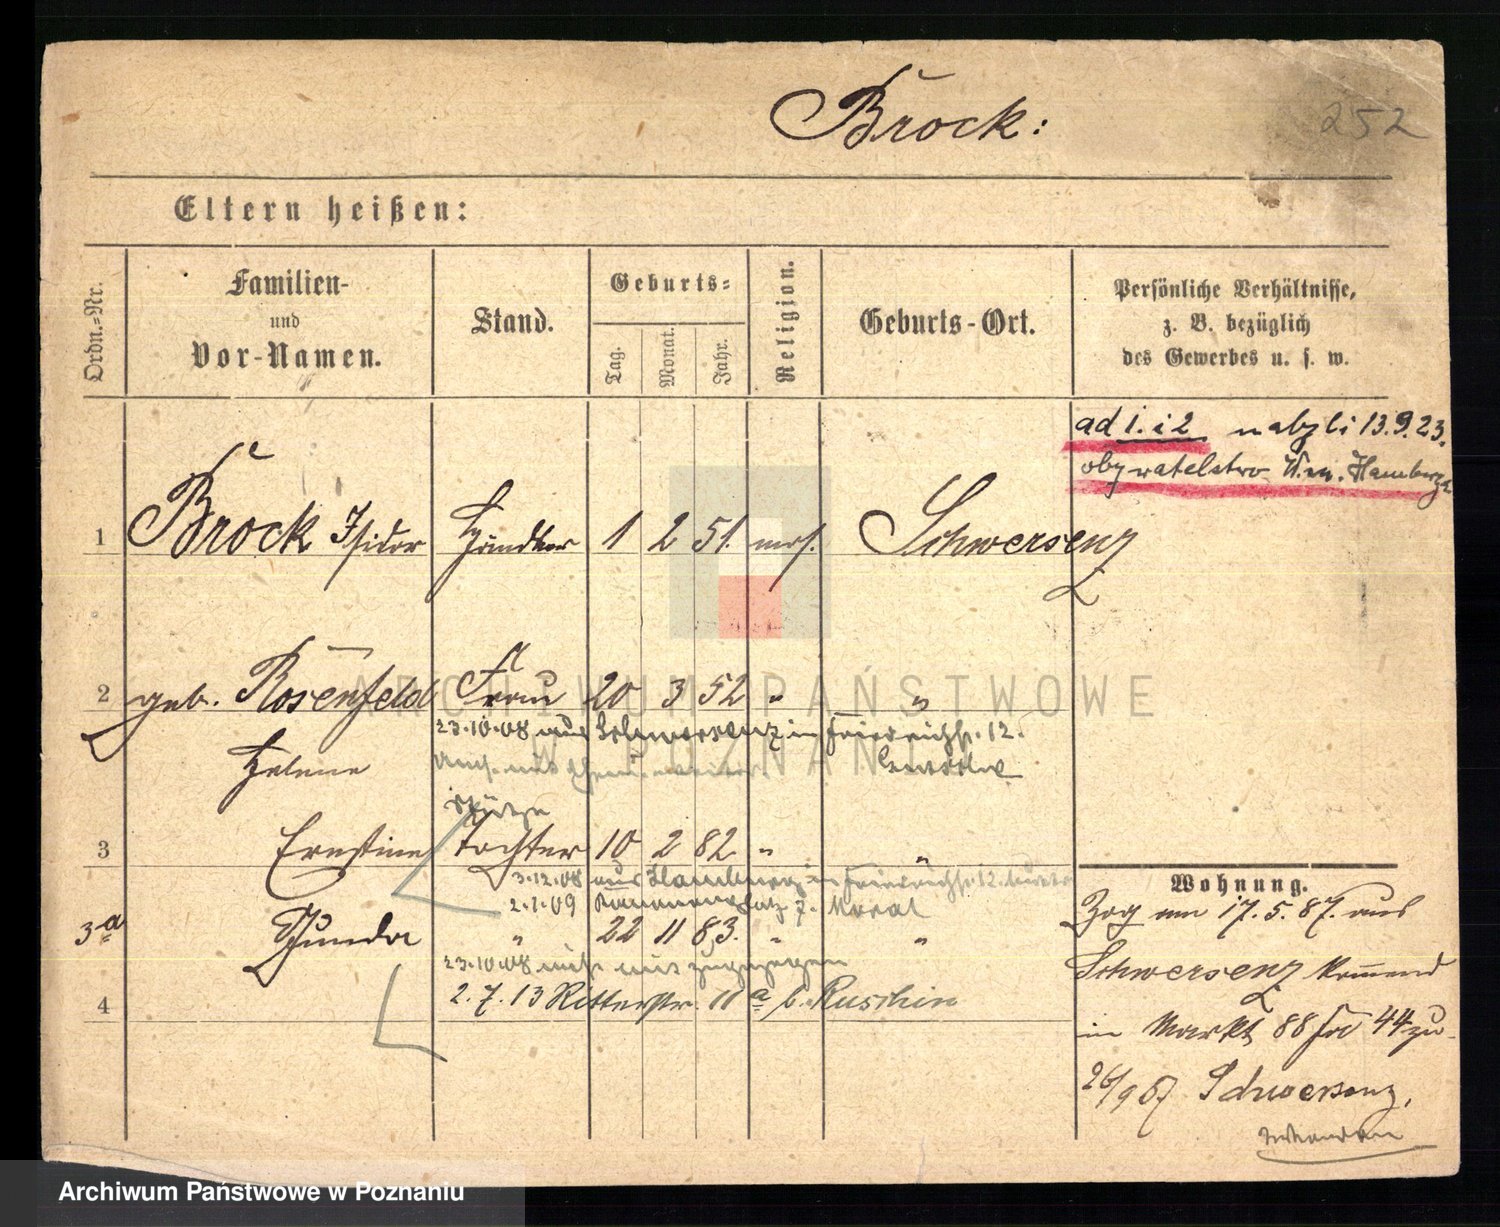 Brock:
252
Eltern heißen:
Ordn.-Nr.
Familien-
und
Vor-Namen.
Stand.
Geburts-
Tag.
Monat.
Jahr.
Religion.
Geburts-Ort.
Persönliche Verhältnisse,
z. B. bezüglich
des Gewerbes u. s. w.
ad 1. i 2 nabyli 13.9.23.
obywatelstwo W.m. Hamburga
1 Brock Isidor Händler 1 2 51. mos. Schwersenz
2 geb. Rosenfeld Frau 20 3 52 " "
23.10.08 aus Schwersenz in Friedrichstr. 12.
Helene
3 Ernestine Tochter 10 2 82 " "
3.12.08 aus Hamburg in Friedrichstr. 12.
2.1.09 7.
3a " 22 11 83. " "
23.10.08 nicht mit zugezogen
4 2.7.13 Ritterstr. 11a b. Ruschin
Wohnung.
Zog am 17.5.87. aus
Schwersenz kommend
in Markt 88 44 zu
26/9 87 Schwersenz.
ARCHIWUM PAŃSTWOWE
W POZNANIU
Archiwum Państwowe w Poznaniu